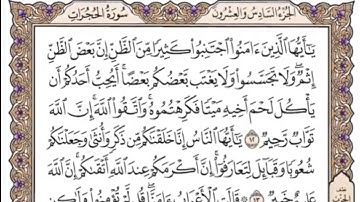 الجزء السادس والعشرون سورة الحجرات
يَٰٓأَيُّهَا ٱلَّذِينَ ءَامَنُوا۟ ٱجْتَنِبُوا۟ كَثِيرًا مِّنَ ٱلظَّنِّ إِنَّ بَعْضَ ٱلظَّنِّ
إِثْمٌ ۖ وَلَا تَجَسَّسُوا۟ وَلَا يَغْتَب بَّعْضُكُم بَعْضًا ۚ أَيُحِبُّ أَحَدُكُمْ أَن
يَأْكُلَ لَحْمَ أَخِيهِ مَيْتًا فَكَرِهْتُمُوهُ ۚ وَٱتَّقُوا۟ ٱللَّهَ ۚ إِنَّ ٱللَّهَ
تَوَّابٌ رَّحِيمٌ ١٢ يَٰٓأَيُّهَا ٱلنَّاسُ إِنَّا خَلَقْنَٰكُم مِّن ذَكَرٍ وَأُنثَىٰ وَجَعَلْنَٰكُمْ
شُعُوبًا وَقَبَآئِلَ لِتَعَارَفُوٓا۟ ۚ إِنَّ أَكْرَمَكُمْ عِندَ ٱللَّهِ أَتْقَىٰكُمْ ۚ إِنَّ ٱللَّهَ
عَلِيمٌ خَبِيرٌ ١٣ قَالَتِ ٱلْأَعْرَابُ ءَامَنَّا ۖ قُل لَّمْ تُؤْمِنُوا۟ وَلَٰكِن
نصف
الحزب